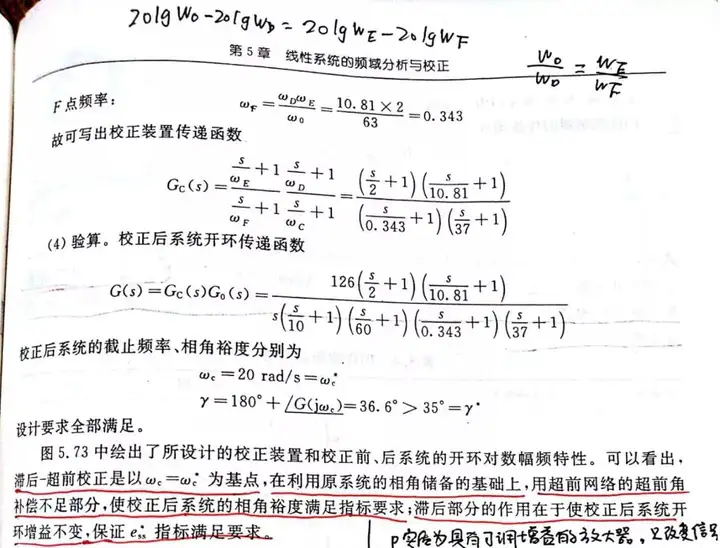 20lgW0-20lgWD=20lgWE-20lgWF
第 5 章 线性系统的频域分析与校正
W0/WD = WE/WF
F 点频率：
ωF = ωDωE/ω0 = 10.81×2/63 = 0.343
故可写出校正装置传递函数
GC(s) = (s/ωE+1)(s/ωD+1) / (s/ωF+1)(s/ωC+1) = (s/2+1)(s/10.81+1) / (s/0.343+1)(s/37+1)
(4) 验算。校正后系统开环传递函数
G(s)=GC(s)G0(s)= 126(s/2+1)(s/10.81+1) / s(s/10+1)(s/60+1)(s/0.343+1)(s/37+1)
校正后系统的截止频率、相角裕度分别为
ωc=20 rad/s=ωc*
γ=180°+∠G(jωc)=36.6°>35°=γ*
设计要求全部满足。
图 5.73 中绘出了所设计的校正装置和校正前、后系统的开环对数幅频特性。可以看出，
滞后-超前校正是以 ωc=ωc* 为基点，在利用原系统的相角储备的基础上，用超前网络的超前角
补偿不足部分，使校正后系统的相角裕度满足指标要求；滞后部分的作用在于使校正后系统开
环增益不变，保证 ess* 指标满足要求。
P实质为具有可调增益的放大器，只改变信号